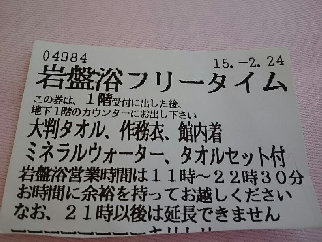 04984 15.-2.24
岩盤浴フリータイム
この券は、1階受付に出した後、
地下1階のカウンターにお出し下さい
大判タオル、作務衣、館内着
ミネラルウォーター、タオルセット付
岩盤浴営業時間は11時~22時30分
お時間に余裕を持ってお越しください
なお、21時以後は延長できません